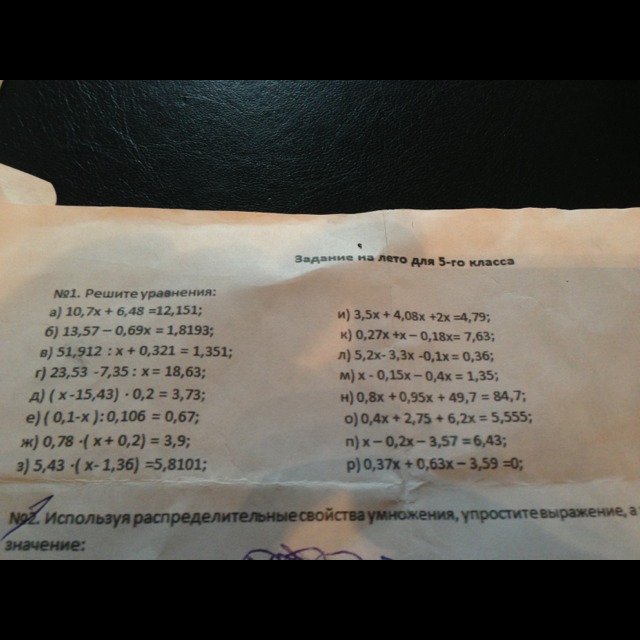 Задание на лето для 5-го класса
№1. Решите уравнения:
а) 10,7х + 6,48 =12,151;
б) 13,57 – 0,69х = 1,8193;
в) 51,912 : х + 0,321 = 1,351;
г) 23,53 -7,35 : х = 18,63;
д) ( х -15,43) · 0,2 = 3,73;
е) ( 0,1-х ): 0,106 = 0,67;
ж) 0,78 ·( х + 0,2) = 3,9;
з) 5,43 ·( х- 1,36) =5,8101;
и) 3,5х + 4,08х +2х =4,79;
к) 0,27х +х – 0,18х= 7,63;
л) 5,2х- 3,3х -0,1х = 0,36;
м) х - 0,15х – 0,4х = 1,35;
н) 0,8х + 0,95х + 49,7 = 84,7;
о) 0,4х + 2,75 + 6,2х = 5,555;
п) х – 0,2х – 3,57 = 6,43;
р) 0,37х + 0,63х – 3,59 =0;
№2. Используя распределительные свойства умножения, упростите выражение, а
значение: